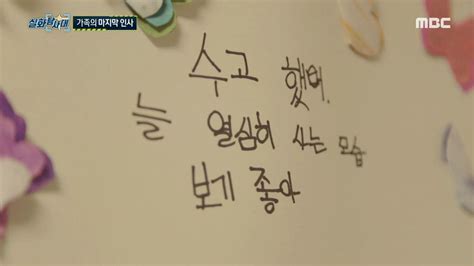 실화탐사대 가족의 마지막 인사
MBC
수고 했어.
늘 열심히 사는 모습
보게 좋아